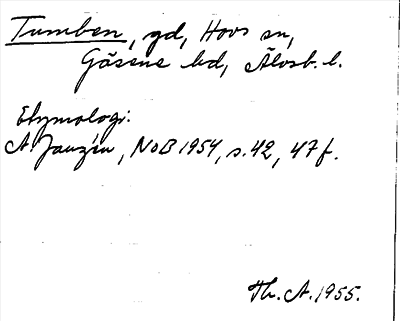 Tumben, gd, Hovs sn,
Gäsene hd, Älvsb. l.
Etymologi:
A Janzén, NoB 1954, s. 42, 47 f.
Th. A. 1955.